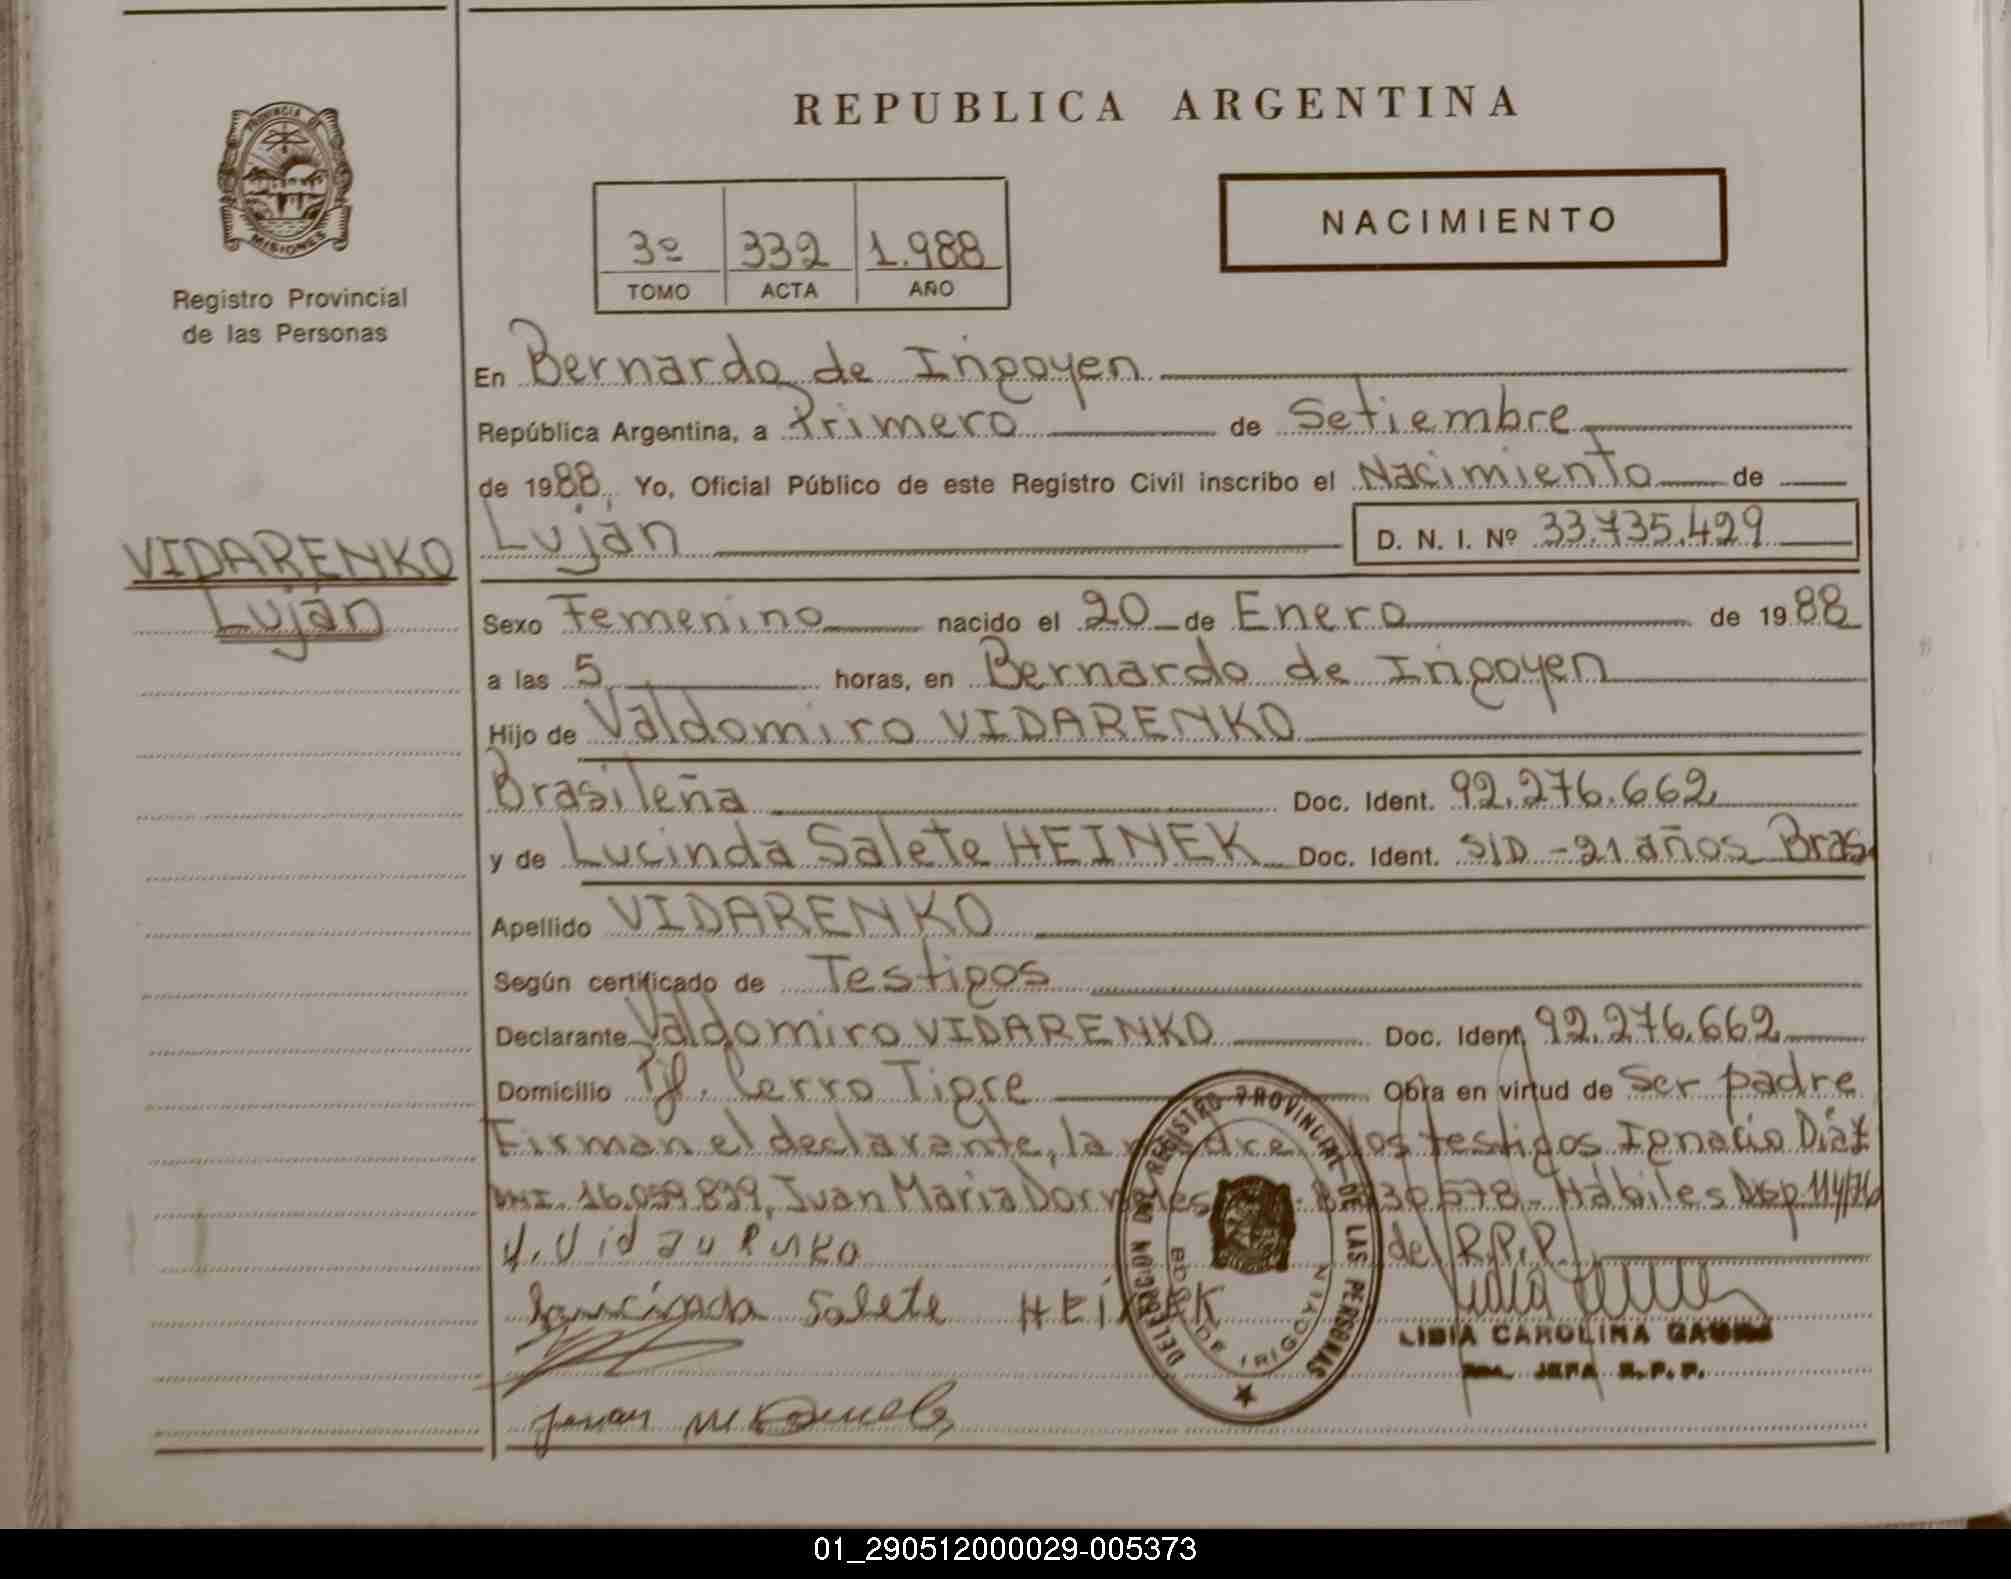 REPUBLICA ARGENTINA
PROVINCIA DE
MISIONES
Registro Provincial
de las Personas
3º 332 1.988
TOMO ACTA AÑO
NACIMIENTO
En Bernardo de Irigoyen
República Argentina, a Primero de Setiembre
de 1988, Yo, Oficial Público de este Registro Civil inscribo el Nacimiento de
Luján D. N. I. Nº 33.735.429
VIDARENKO
Luján
Sexo Femenino nacido el 20 de Enero de 1988
a las 5 horas, en Bernardo de Irigoyen
Hijo de Valdomiro VIDARENKO
Brasileña Doc. Ident. 92.276.662
y de Lucinda Salete HEINEK Doc. Ident. S/D - 21 años Bras.
Apellido VIDARENKO
Según certificado de Testigos
Declarante Valdomiro VIDARENKO Doc. Ident. 92.276.662
Domicilio Cerro Tigre Obra en virtud de Ser padre
Firman el declarante, la madre los testigos Ignacio Díaz
DNI. 16.059.899, Juan Maria Habiles Disp 114/76
del R.P.P.
Salete HEINEK
DELEGACION DEL REGISTRO PROVINCIAL DE LAS PERSONAS
BDO. DE IRIGOYEN
LIDIA CAROLINA
JEFA R.P.P.
Juan
01_290512000029-005373